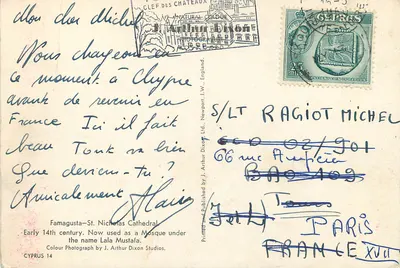 Mon cher Michel
Nous nageons en
ce moment à Chypre
avant de revenir en
France Ici il fait
beau Tout va bien
Que deviens-tu ?
Amicalement Alain
Famagusta—St. Nicholas Cathedral,
Early 14th century. Now used as a Mosque under
the name Lala Mustafa.
Colour Photograph by J. Arthur Dixon Studios.
CYPRUS 14
CLEF DES CHATEAUX
NATURAL COLOUR
J. Arthur Dixon
Printed and Published by J. Arthur Dixon Ltd., Newport, I.W., England.
CYPRUS
S/LT RAGIOT MICHEL
66 rue
BAO 109
Tours
PARIS
FRANCE XVII